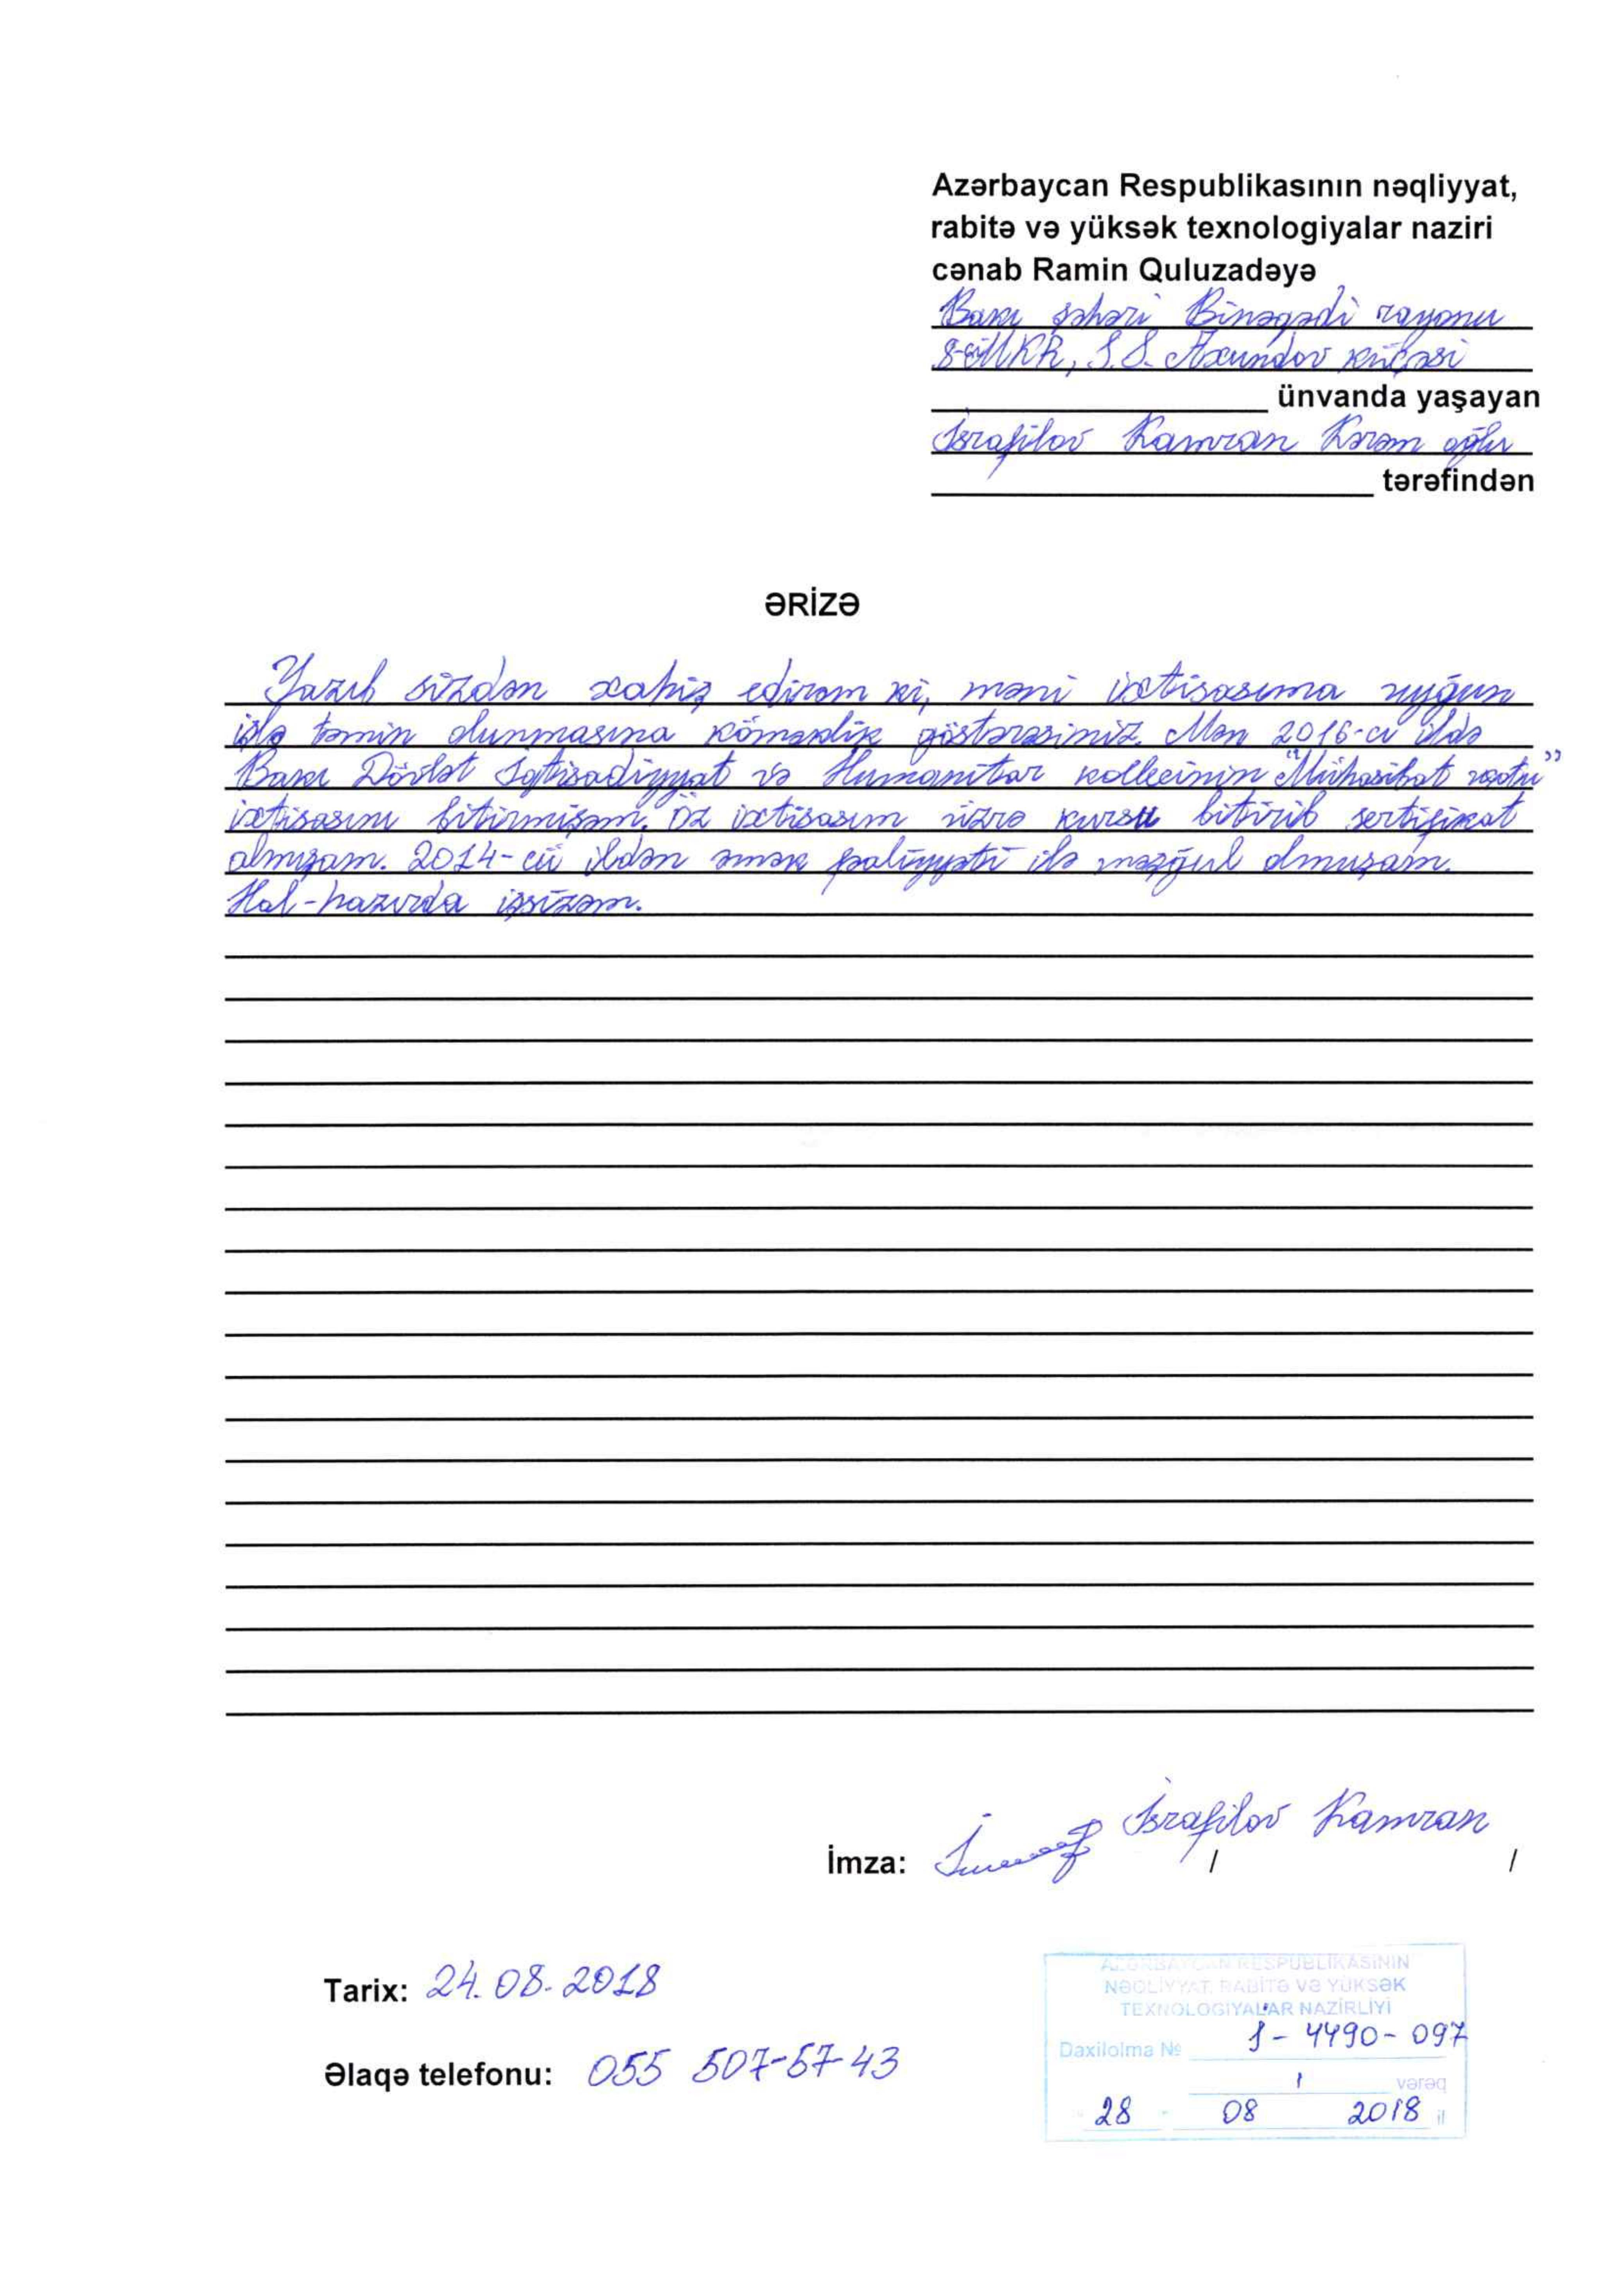 Azərbaycan Respublikasının nəqliyyat,
rabitə və yüksək texnologiyalar naziri
cənab Ramin Quluzadəyə
Bakı şəhəri Binəqədi rayonu
8-ci MKR, S.S. Axundov küçəsi
ünvanda yaşayan
İsrafilov Kamran Kərəm oğlu
tərəfindən
ƏRİZƏ
Yazıb sizdən xahiş edirəm ki, məni ixtisasıma uyğun
işlə təmin olunmasına köməklik göstərəsiniz. Mən 2016-cı ildə
Bakı Dövlət İqtisadiyyat və Humanitar kollecinin "Mühasibat uçotu"
ixtisasını bitirmişəm. Öz ixtisasım üzrə kursu bitirib sertifikat
almışam. 2014-cü ildən əmək fəaliyyəti ilə məşğul olmuşam.
Hal-hazırda işsizəm.
İsrafilov Kamran
İmza: / /
Tarix: 24.08.2018
Əlaqə telefonu: 055 507-57-43
AZƏRBAYCAN RESPUBLİKASININ
NƏQLİYYAT, RABİTƏ VƏ YÜKSƏK
TEXNOLOGİYALAR NAZİRLİYİ
Daxilolma № 1-4490-097
1 vərəq
28 08 2018 il